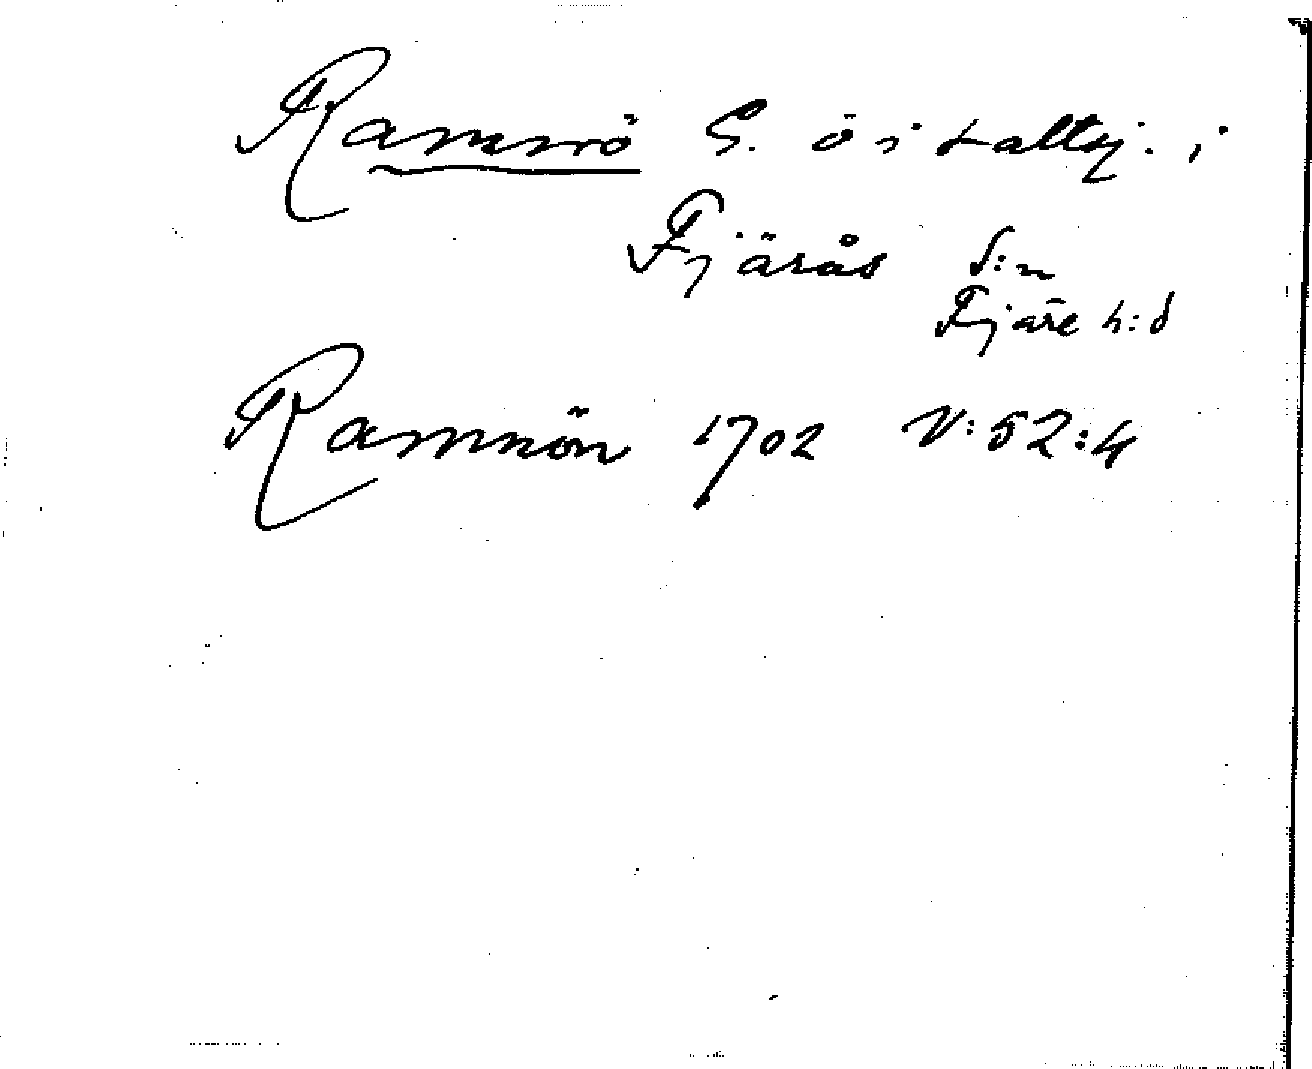 Ramnö S. ö i saltsj. i
Fjärås s:n
Fjäre h:d
Ramnön 1702 V:52:4